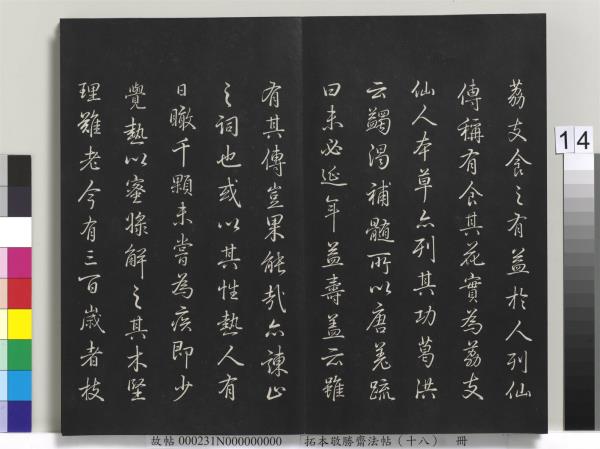 荔支食之有益於人列仙
傳稱有食其花實為荔支
仙人本草亦列其功葛洪
云蠲渴補髓所以唐羌疏
曰未必延年益壽蓋云雖
有其傳豈果能哉亦諫止
之詞也或以其性熱人有
日噉千顆未嘗為疾即少
覺熱以蜜漿解之其木堅
理難老今有三百歲者枝
14
故帖 000231N000000000 拓本敬勝齋法帖(十八) 冊